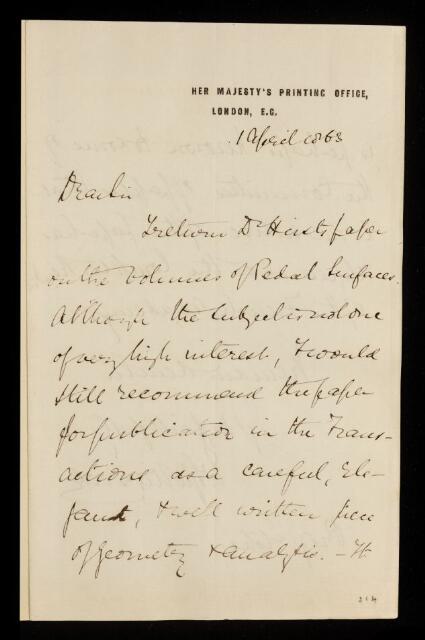 HER MAJESTY'S PRINTING OFFICE,
LONDON, E.C.
1 April 1863
Dear Sir
I return Dr Hirst's paper
on the Volumes of Pedal Surfaces.
Although the subject is not one
of very high interest, I would
still recommend the paper
for publication in the Trans-
actions as a careful, ele-
gant, & well written piece
of Geometry & analysis. – It
214